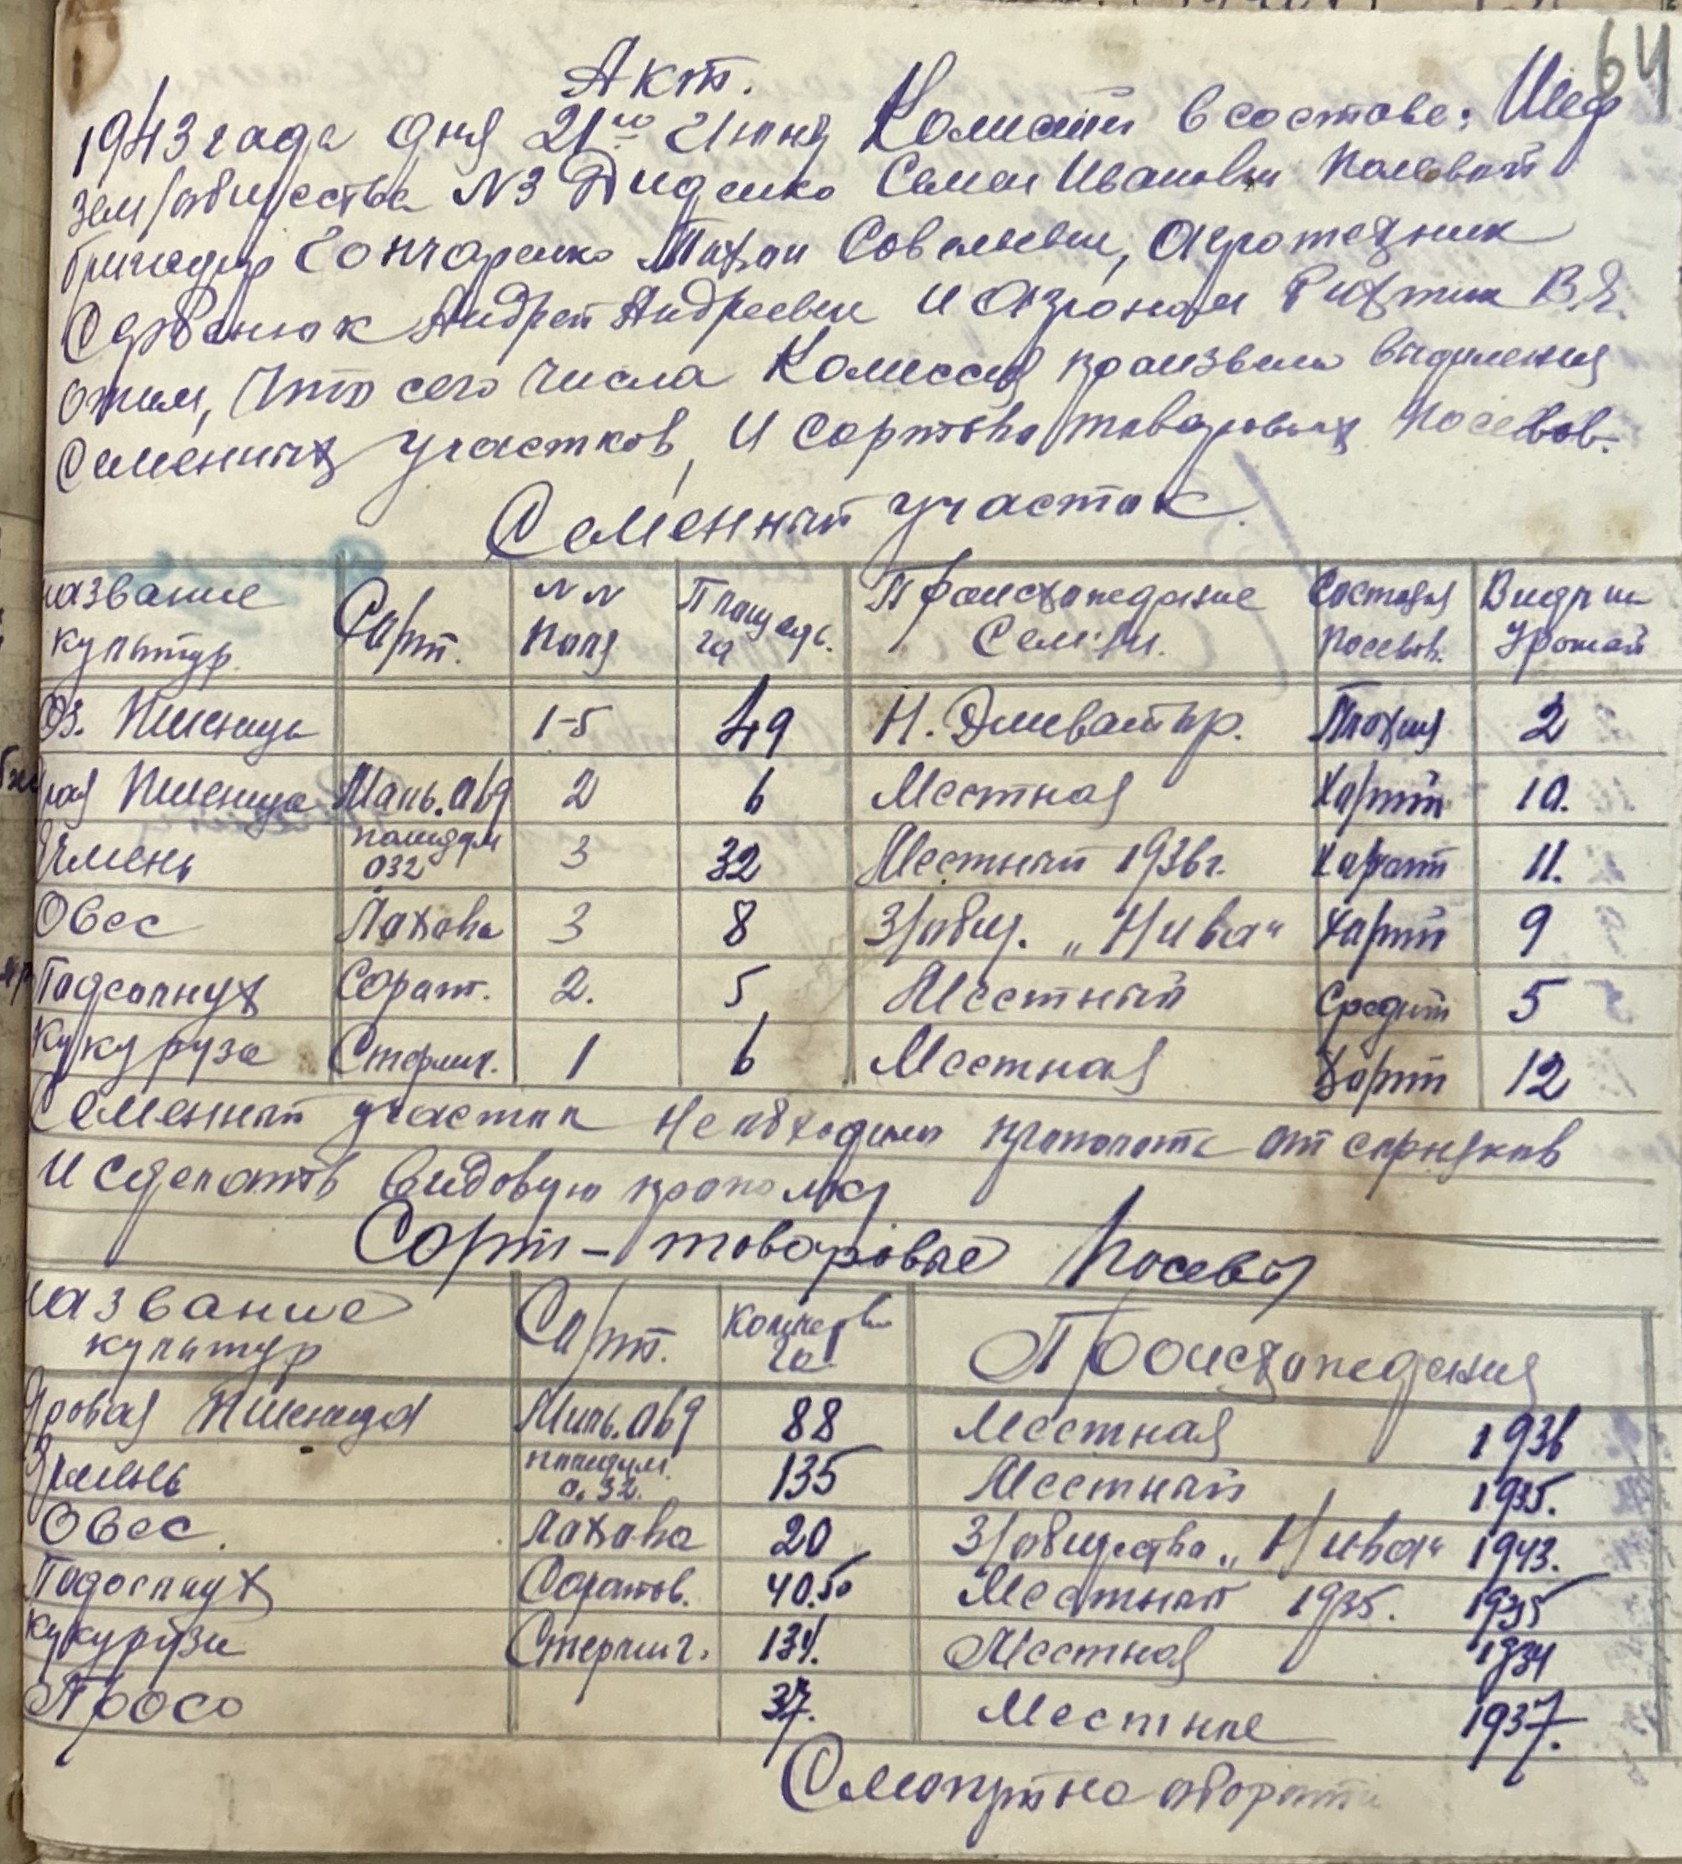 64
Акт.
1943 года дня 21го Июня Комисии в составе: Шеф
Зем/общества N3 Диденко Семен Иванович Полевой
бригадир Гончаренко Савельевич, Агротехник
Андрей Андреевич и Агроном В.Я.
о том, что сего числа Комиссия произвела выделения
Семенных участков, и Сортово/товаровых посевов.
Семенный участок.
название культур. | Сорт. | NN поля | Площадь. га | Происхождение Семян. | Состояния посевов. | Виды на Урожай
Оз. Пшеница | 1-5 | 49 | Н. | Плохия | 2
рая Пшеница | 2 | 6 | Местная | Хорший | 10.
Ячмень | палидум 032 | 3 | 32 | Местный 1936г. | Хороший | 11.
Овес | Лохова | 3 | 8 | З/общ. „Нива“ | Хорший | 9
Подсолнух | Сорат. | 2. | 5 | Местный | Средний | 5
Кукуруза | Стерлинг. | 1 | 6 | Местная | Хорший | 12
Семенный участок необходимо прополоть от сорняков
и сделать видовую прополку
Сорт-товаровые Посевы
название культур | Сорт. | Количество га. | Происхождения
Яровая Пшеница | 88 | Местная 1936
Ячмень | палидум. 0.32. | 135 | Местный 1935.
Овес. | Лохова | 20 | З/общества „Нива“ 1943.
Подсолнух | Соратов. | 40.50 | Местный 1935. 1935
Кукурузы | Стерлинг. | 134. | Местная 1934
Просо | 37. | Местные 1937.
Смотри на обороте